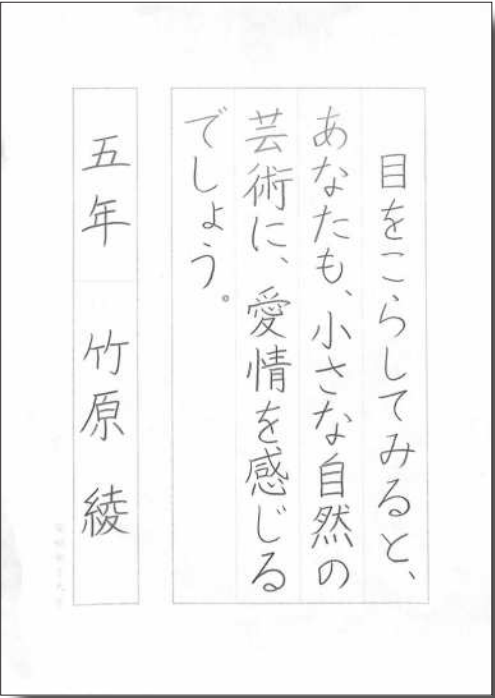 目をこらしてみると、
あなたも、小さな自然の
芸術に、愛情を感じる
でしょう。
五年 竹原 綾